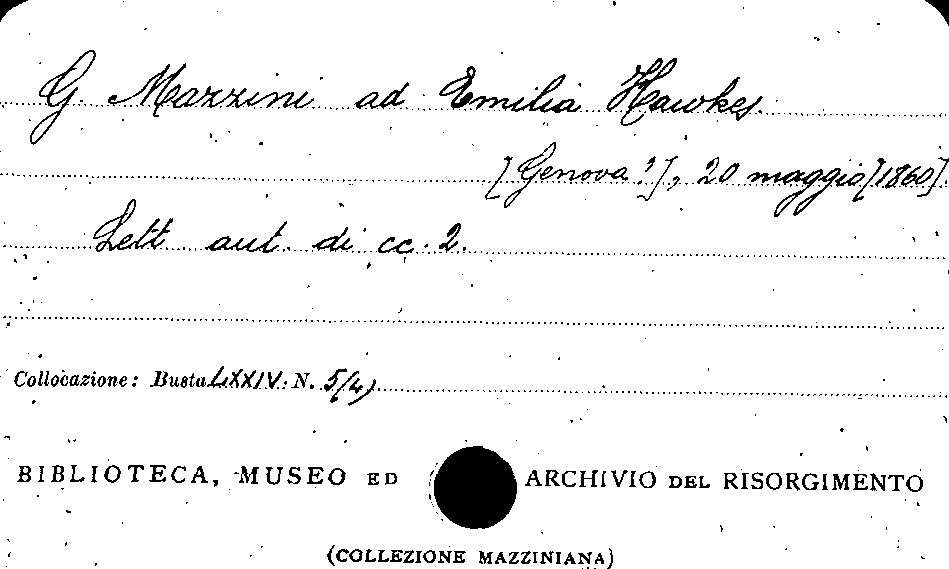 G. Mazzini ad Emilia Hawkes.
[Genova?], 20 maggio [1860].
Lett. aut. di cc. 2.
Collocazione: Busta LXXIV. N. 5(4)
BIBLIOTECA, MUSEO ED ARCHIVIO DEL RISORGIMENTO
(COLLEZIONE MAZZINIANA)